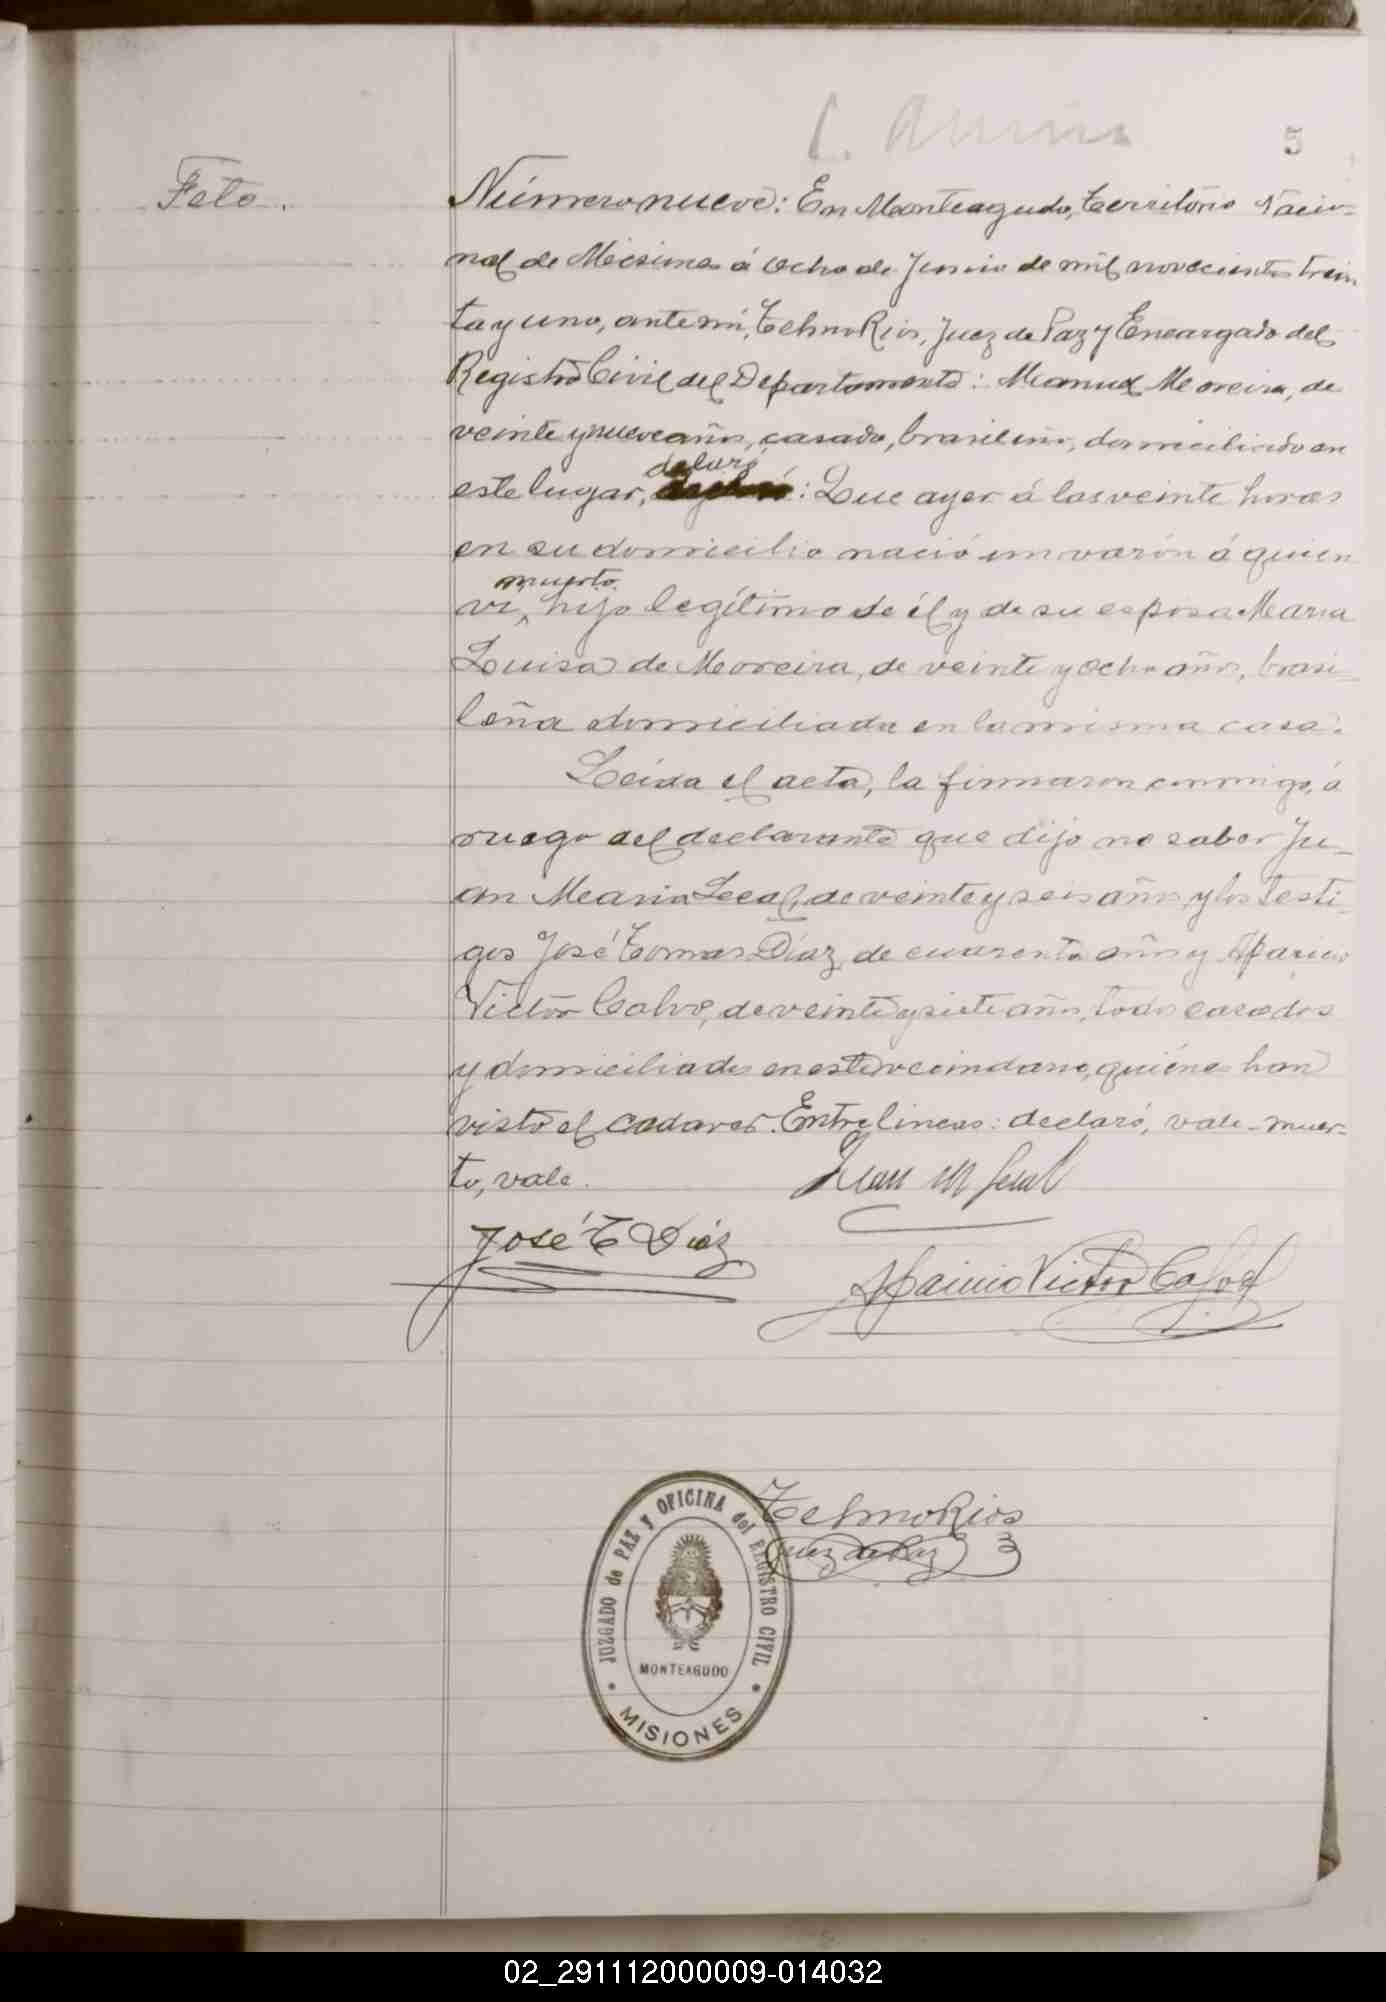 5
Feto.
Número nueve: En Monteagudo, Territorio Nacio-
nal de Misiones á ocho de Junio de mil novecientos trein
ta y uno, ante mí, Telmo Rios, Juez de Paz y Encargado del
Registro Civil del Departamento: Manuel Moreira, de
veinte y nueve años, casado, brasileño, domiciliado en
declaró
este lugar, : Que ayer á las veinte horas
en su domicilio nació un varón á quien
muerto
ví, hijo legítimo de él y de su esposa Maria
Luisa de Moreira, de veinte y ocho años, brasi-
leña domiciliada en la misma casa.
Leída el acta, la firmaron conmigo, á
ruego del declarante que dijo no saber Ju-
an Maria Leal, de veinte y seis años, y los testi-
gos José Tomas Díaz, de cuarenta años y Aparicio
Victor Calvo, de veinte y siete años, todos casados
y domiciliados en este vecindario, quiénes han
visto el cadaver. Entre lineas: declaró, vale-muer-
to, vale.
Juan M Leal
José T Diáz
Aparicio Victor Calvo
Telmo Rios
Juez de Paz
JUZGADO de PAZ y OFICINA del REGISTRO CIVIL
MONTEAGUDO
MISIONES
02_291112000009-014032